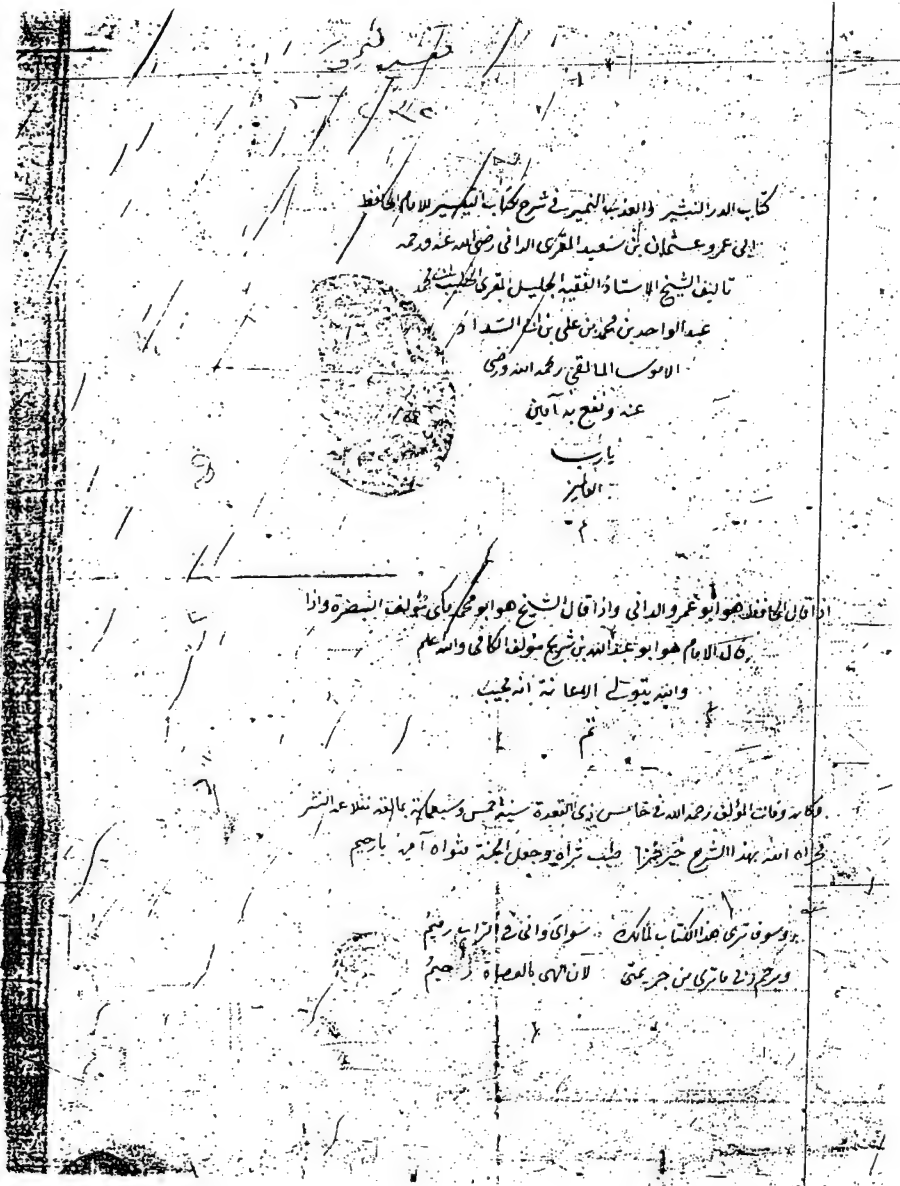 كتاب الدر النثير والعذب النمير في شرح كتاب التيسير للامام الحافظ
ابي عمرو عثمان بن سعيد المقرى الداني رضي الله عنه ورحمه
تاليف الشيخ الاستاذ الفقيه الجليل المقرى الخطيب ابي محمد
عبد الواحد بن محمد بن علي بن ابي السداد
الاموي المالقي رحمه الله ورضى
عنه ونفع به آمين
يارب
العالمين
م
اذا قال الحافظ هو ابو عمرو الداني واذا قال الشيخ هو ابو محمد مكي مؤلف التبصرة واذا
قال الامام هو ابو عبد الله بن شريح مؤلف الكافي والله اعلم
والله يتولى الاعانة انه مجيب
تم
وكان وفات المؤلف رحمه الله في خامس ذي القعدة سنة خمس وسبعمائة بمالقه نقلا عن النشر
فجزاه الله بهذا الشرح خير جزا طيب ثراه وجعل الجنة مثواه آمين يارحيم
وسوف ترى هذا الكتاب لمالك سواى وانى في التراب رميم
ويرحم ربي ما ترى من جريمتى لان الهى بالعصاه رحيم